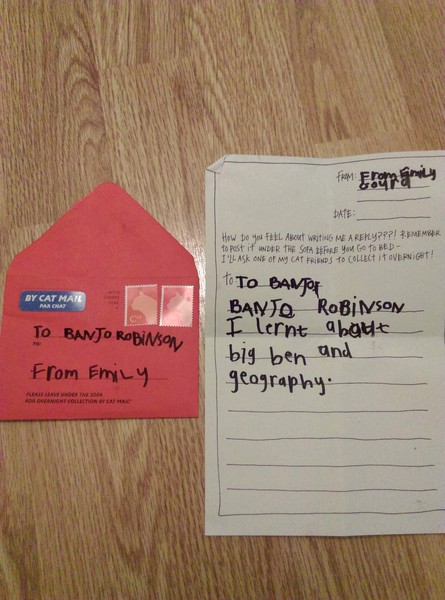 BY CAT MAIL
PAR CHAT
TO BANJO ROBINSON
TO:
From EmiLY
PLEASE LEAVE UNDER THE SOFA
FOR OVERNIGHT COLLECTION BY CAT MAIL
FROM: From EmiLy
DATE:
HOW DO YOU FEEL ABOUT WRITING ME A REPLY???! REMEMBER
TO POST IT UNDER THE SOFA BEFORE YOU GO TO BED -
I'LL ASK ONE OF MY CAT FRIENDS TO COLLECT IT OVERNIGHT!
TO TO BANJO
BANJO ROBINSON
I lernt about
big ben and
geography.